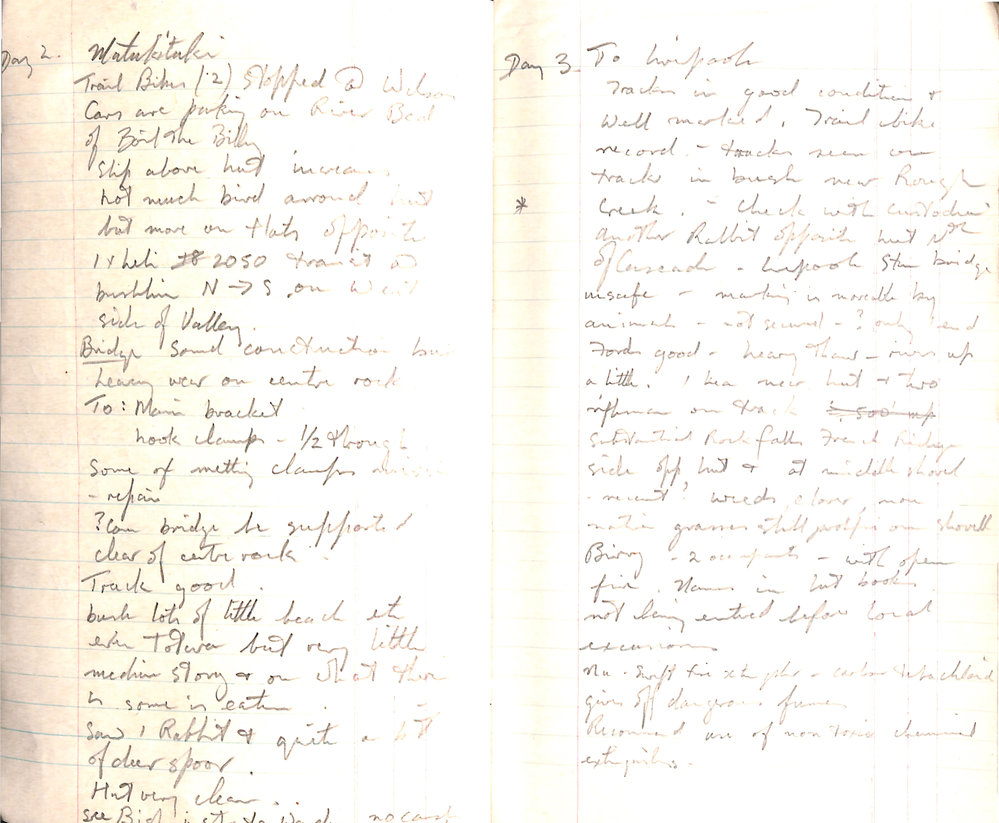 Day 2. Matukituki
Trail Bikes (2) stopped @ Wilson
Cars are parking on River Bed
of Boil the Billy
Slip above hut increas
not much bird around hut
but more on flats opposite
1 x heli 2050 transit @
bushline N → S. on West
side of Valley.
Bridge Sound construction but
heavy wear on centre rock
To: Main bracket
hook clamps - 1/2 through
Some of netting clamps missi
- repair
? Can bridge be supported
clear of centre rock
Track good.
bush lots of little beach etc
even Totara but very little
medium story & on what there
is some is eaten.
Saw 1 Rabbit & quite a lot
of deer spoor.
Hut very clean.
see
Day 3. To Liverpool
Tracks in good condition &
Well marked. Trail bike
record. - tracks seen on
track in bush near Rough
* Creek. - Check with custodian
another Rabbit opposite hut Nth
of Cascade - Liverpool Stm bridge
unsafe - marking is moveable by
animals - not secured - ? only 1 end
Fords good - heavy thaw - rivers up
a little. 1 kea near hut & two
rifleman on track 500' up
Substantial Rockfalls French Ridge
side opp hut & at middle shovel
- recent? weeds clover now
native grasses still on Shovell
Bivvy - 2 occupants - with open
fire. Names in hut books
not being entered before local
excursions
Nu. Swift fire - carbon tetrachloride
gives off dangerous fumes
Recommend use of non toxic chemical
extinguishers.